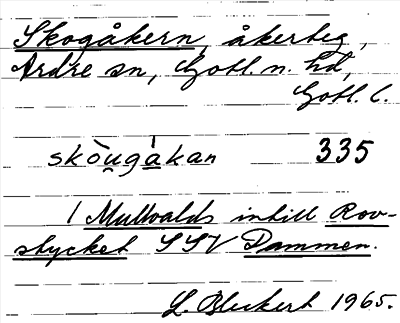 Skogåkern, åkerteg,
Ardre sn, Gotl. n. hd,
Gotl. l.
skòu̯gá̱kan 335
1 Mullvalds intill Rov-
stycket SSV Dammen.
L. Bleckert 1965.